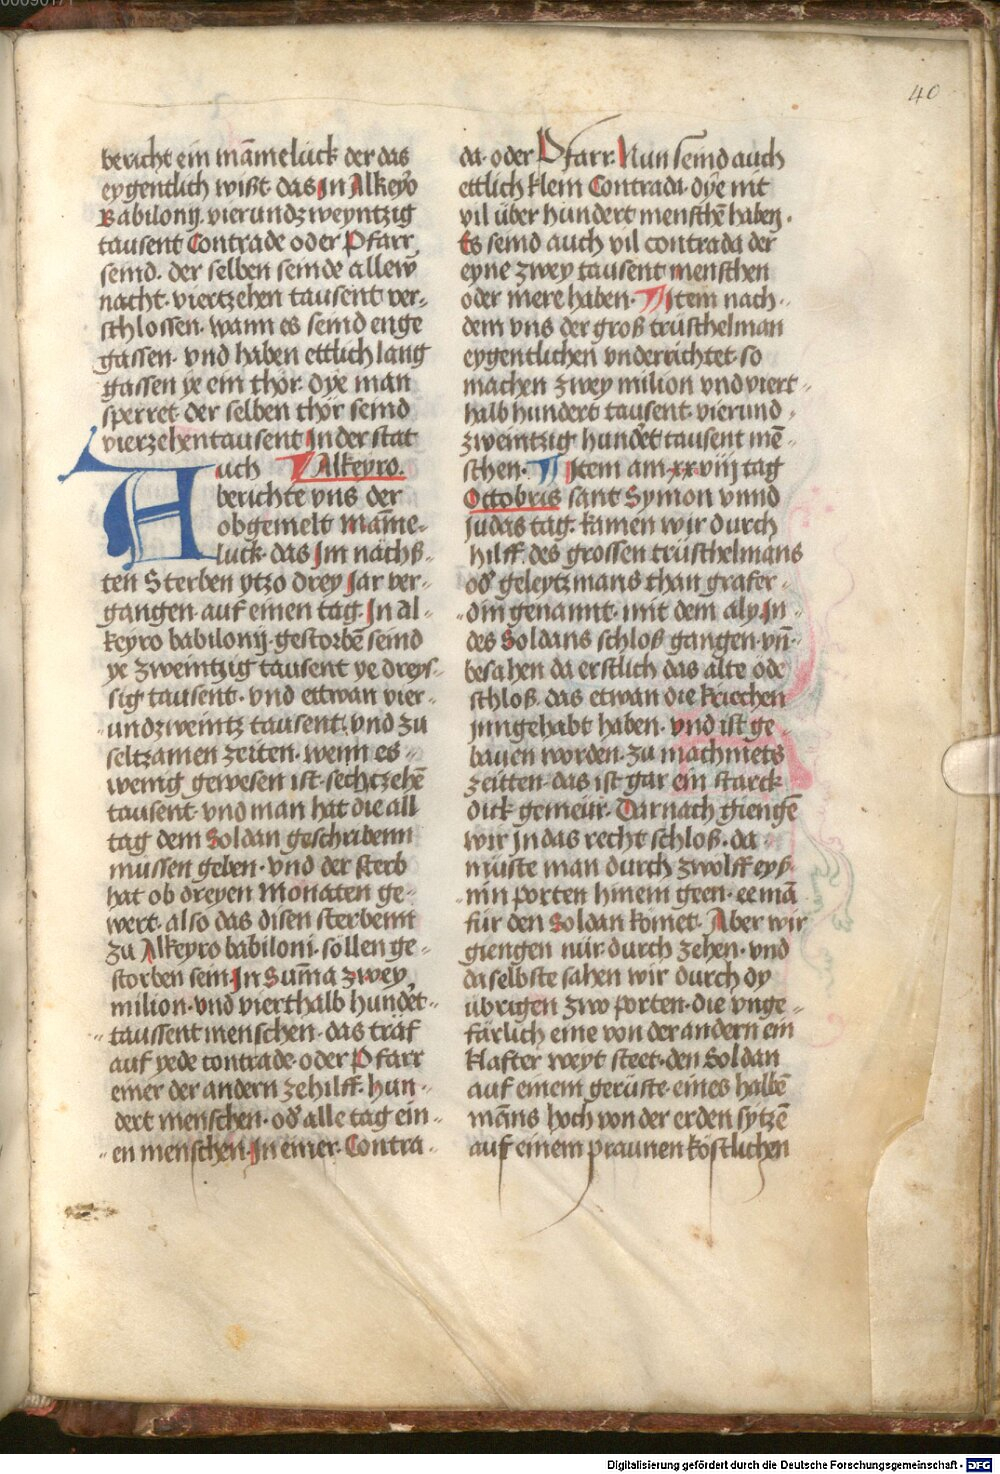 00090171
40
bericht ein māmeluck der das
eygentlich wißt das Jn Alkeyro
Babilonij. vierundzweyntzig
tausent Contrade oder Pfarr
seind. der selben seinde allew̄
nacht. viertzehen tausent ver-
schlossen. wann es seind enge
gassen. vnd haben ettlich lang
gassen ye ein thör. dye man
sperret. der selben thör seind
vierzehentausent Jn der stat
Alkeyro.
Auch
berichte vns der
obgemelt mām̄e-
luck. das Jm nächß-
ten Sterben ytzo drey Jar ver-
gangen. auf einen tag. Jn al-
keyro babilonij. gestorbē seind
ye zweintzig tausent ye dreys-
sig tausent. vnd ettwan vier-
undzweintz tausent. vnd zu
seltzamen zeiten. wenn es
wenig gewesen ist. sechczehē
tausent. vnd man hat die all
tag dem Soldan geschribenn
mussen geben. vnd der sterb
hat ob dreyen Monaten ge-
wert. also das disen sterbenn
zu Alkeyro babiloni. söllen ge-
storben sein Jn Sum̄a zwey
milion. vnd vierthalb hundet-
taussent menschen. das träf
auf yede contrade. oder Pfarr
einer der andern zehilff. hun-
dert menschen. od̄ alle tag ein-
en menschen. Jn einer. Contra-
da. oder Pfarr. Nun seind auch
ettlich klein Contrada. dye nit
vil über hundert menschē haben.
Es seind auch vil contrada der
eyne zwey tausent menschen
oder mere haben. Jtem nach-
dem vns der groß trüschelman
eygentlichen vnderrichtet. so
machen zwey milion vnd viert-
halb hundert tausent. vierund-
zweintzig hundēt tausent mē-
schen. Jtem am xxviij tag
Octobris sant Symon vnnd
judas tag. kamen wir durch
hilff. des grossen trüschelmans
od̄ geleytzmans than grafer-
din genannt. mit dem aly. Jn
des Soldans schloß gangen. vn̄
besahen da erstlich das alte öde
schloß. das etwan die kriechen
jnngehabt haben. vnd ist ge
bauen worden. zu machmets
zeitten. das ist gar ein starck
dick gemeür. Darnach giengē
wir jn das recht schloß. da
müste man durch zwölff eyß
nin porten hinein geen. ee mā
für den Soldan kömet. Aber wir
giengen nür durch zehen. vnd
daselbste sahen wir durch dy
übrigen zwo porten. die vnge-
färlich eine von der andern ein
klafter weyt steet. den Soldan
auf einem gerüste. eines halbē
māns hoch von der erden sytzē
auf einem praunen köstlichen
Digitalisierung gefördert durch die Deutsche Forschungsgemeinschaft - DFG